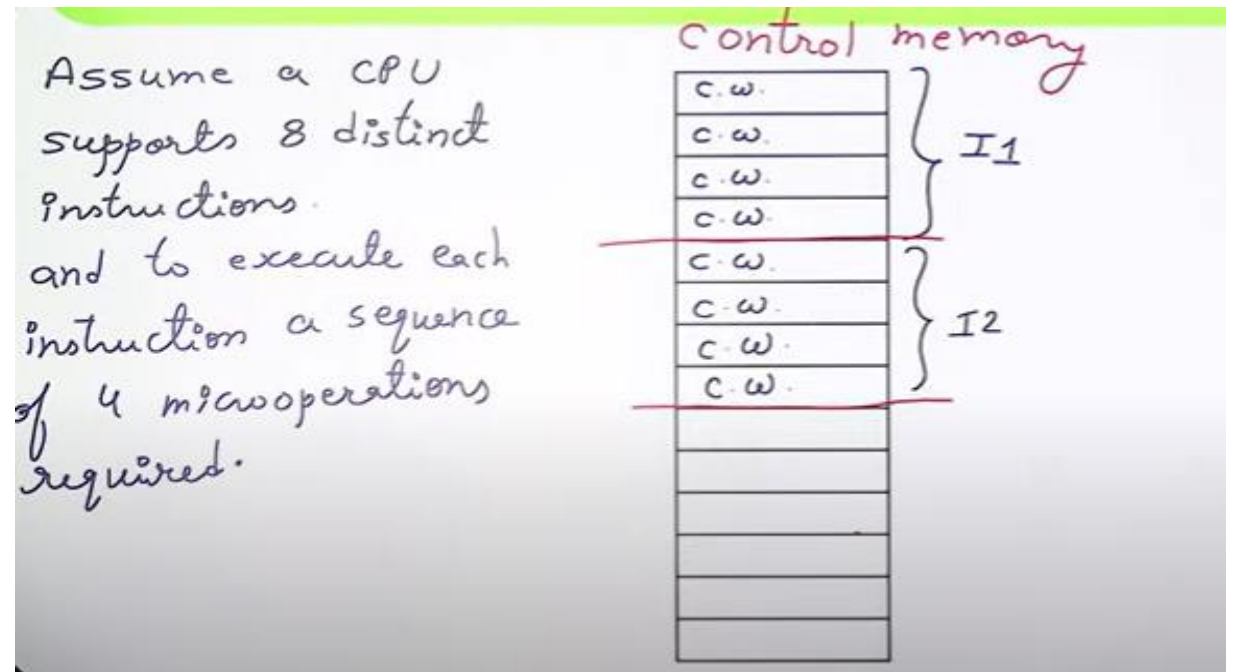 Assume a CPU
supports 8 distinct
instructions.
and to execute each
instruction a sequence
of 4 microoperations
required.
control memory
c.w.
c.w.
c.w.
c.w.
I1
c.w.
c.w.
c.w.
c.w.
I2